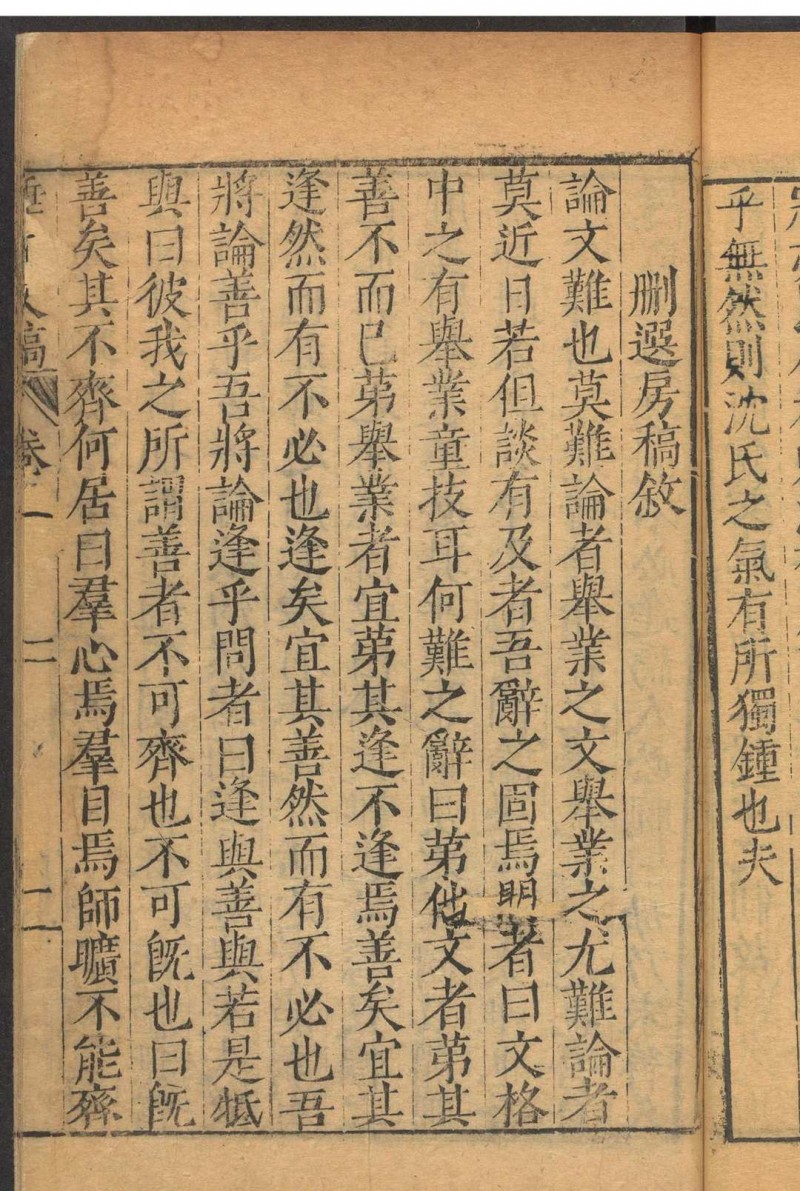 乎無然則沈氏之氣有所獨鍾也夫
刪選房稿敘
論文難也莫難論者舉業之文舉業之尤難論者
莫近日若但談有及者吾辭之固焉問者曰文格
中之有舉業童技耳何難之辭曰第他文者第其
善不而已第舉業者宜第其逢不逢焉善矣宜其
逢然而有不必也逢矣宜其善然而有不必也吾
將論善乎吾將論逢乎問者曰逢與善與若是牴
與曰彼我之所謂善者不可齊也不可旣也曰旣
善矣其不齊何居曰羣心焉羣目焉師曠不能齊
稿 卷一 二 二